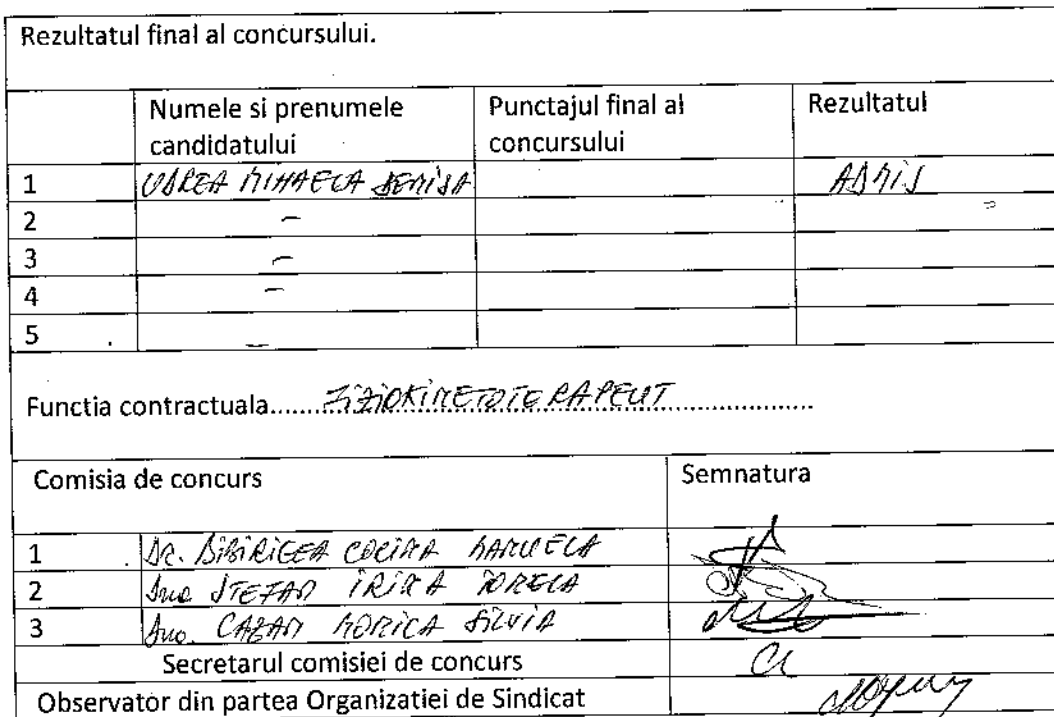 Rezultatul final al concursului.
Numele si prenumele candidatului
Punctajul final al concursului
Rezultatul
1 UDREA MIHAELA DENISA ADMIS
2 –
3 –
4 –
5 –
Functia contractuala...... FiziOKiNETOTERAPEUT ......
Comisia de concurs Semnatura
1 DR. BIBIRIGEA CORINA MANUELA
2 STEFAN IRINA
3 CAZAN MONICA SILVIA
Secretarul comisiei de concurs
Observator din partea Organizatiei de Sindicat